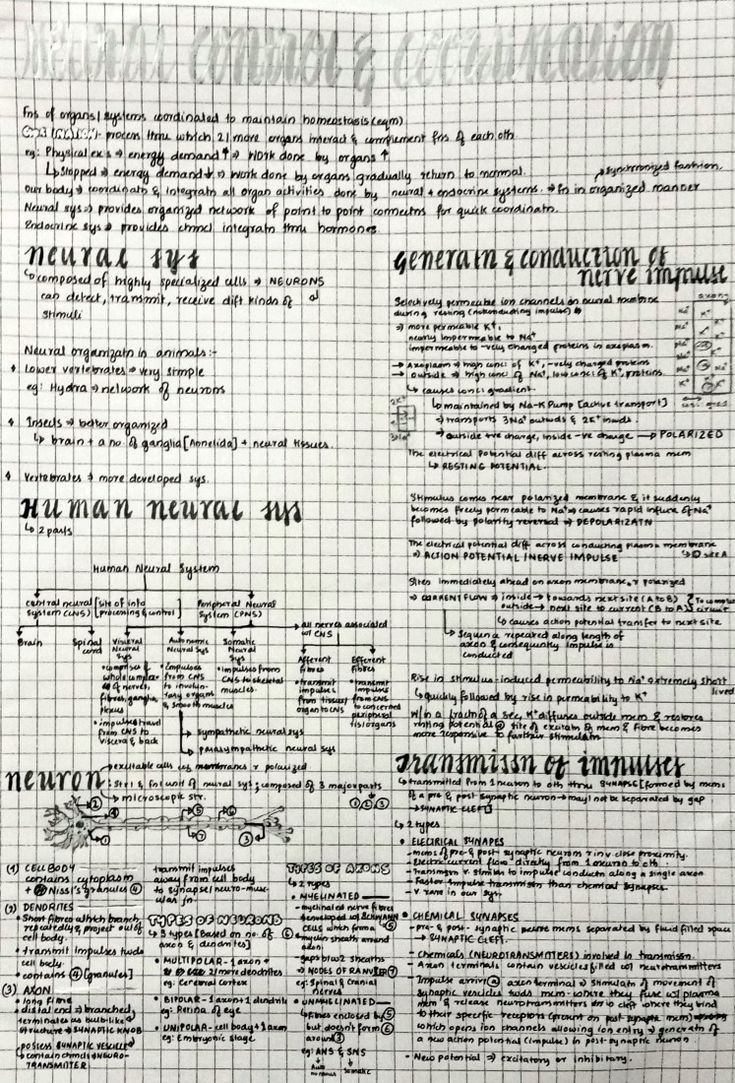 neural control & coordination
Fns of organs/systems coordinated to maintain homeostasis (eqm)
process thru which 2/more organs interact & complement fns of each oth
eg: Physical exs → energy demand ↑ → work done by organs ↑
↳ stopped → energy demand ↓ → work done by organs gradually return to normal.
synchronized fashion.
Our body → coordinatn & integratn all organ activities done by neural + endocrine systems. → fn in organized manner
Neural sys → provides organized network of point to point connectns for quick coordinatn.
Endocrine sys → provides chmcl integratn thru hormones
neural sys
↳ composed of highly specialized cells → NEURONS
can detect, transmit, receive difft kinds of
stimuli
Neural organizatn in animals:-
Lower vertebrates → very simple
eg: Hydra → network of neurons
Insects → better organized
↳ brain + a no. of ganglia [Annelida] + neural tissues.
Vertebrates → more developed sys.
Human neural sys
↳ 2 parts
Human Neural System
Central neural system (CNS) [site of info processing & control]
Peripheral Neural System (PNS)
all nerves associated w/ CNS
Brain
Spinal cord
Visceral Neural Sys
• comprises of whole complex of nerves, fibres, ganglia, plexus
• impulses travel from CNS to viscera & back
Autonomic Neural Sys
• impulses from CNS to involuntary organs & smooth muscles
Somatic Neural Sys
• impulses from CNS to skeletal muscles.
Afferent fibres
• transmit impulses from tissue/organ to CNS
Efferent fibres
• transmit impulses from CNS to concerned peripheral tis/organs
→ sympathetic neural sys
→ parasympathetic neural sys
neuron
→ excitable cells cz membranes r polarized
: Strl & fnl unit of neural sys; composed of 3 major parts
→ microscopic str.
①②③
(1) CELL BODY
contains cytoplasm
+ Nissl's granules ④
(2) DENDRITES
• Short fibres which branch
repeatedly & project out of
cell body.
• transmit impulses twds
cell body.
• contains ④ [granules]
(3) AXON
• long fibre
• distal end → branched,
terminates as bulblike
structure → SYNAPTIC KNOB
possess SYNAPTIC VESICLE
↳ contain chmcls NEURO-
TRANSMITTER
transmit impulses
away from cell body
to synapse/neuro-muscu-
lar jn.
TYPES OF NEURONS
↳ 3 types [Based on no. of
axon & dendites]
• MULTIPOLAR - 1 axon +
2/more dendites
eg: Cerebral cortex
• BIPOLAR - 1 axon + 1 dendrite
eg: Retina of eye
• UNIPOLAR - cell body + 1 axon
eg: Embryonic stage
TYPES OF AXONS
↳ 2 types
• MYELINATED
myelinated nerve fibres
enveloped w/ SCHWANN
CELLS which form a
myelin sheath around
axon.
gaps b/w 2 sheaths
→ NODES OF RANVIER ⑦
eg: Spinal & Cranial
nerves
• UNMYELINATED
fibre enclosed by ⑤
but doesn't form ⑥
around ③
eg: ANS & SNS
Autonomous
Somatic
Generatn & conduction of
nerve impulse
Selectively permeable ion channels on neural membrane
during resting (not conducting impulse)
→ more permeable K⁺,
nearly impermeable to Na⁺
impermeable to -vely charged proteins in axoplasm.
→ Axoplasm → high conc of K⁺, -vely charged proteins
→ outside → high conc of Na⁺, low conc of K⁺, proteins.
↳ causes conc gradient.
↳ maintained by Na-K Pump [active transport]
→ transports 3Na⁺ outwds & 2K⁺ inwds.
→ outside +ve charge, inside -ve charge → POLARIZED
The electrical potential diff across resting plasma mem
↳ RESTING POTENTIAL.
Stimulus comes near polarized membrane & it suddenly
becomes freely permeable to Na⁺ → causes rapid influx of Na⁺
followed by polarity reversed → DEPOLARIZATN
The electrical potential diff across conducting plasma membrane
→ ACTION POTENTIAL/NERVE IMPULSE
site A
Sites immediately ahead on axon membrane, r polarized
→ CURRENT FLOW → inside → towards next site (A to B)
outside → next site to current (B to A)
To complete circuit
↳ causes action potential transfer to next site
↳ Sequen is repeated along length of
axon & consequently impulse is
conducted
Rise in stimulus-induced permeability to Na⁺ extremely short
lived
↳ quickly followed by rise in permeability to K⁺
W/in a fractn of a sec, K⁺ diffuses outside mem & restores
resting potential @ site of excitatn of mem & fibre becomes
more responsive to further stimulatn
Transmissn of impulses
↳ transmitted from 1 neuron to oth thru SYNAPSE [formed by mems
of a pre & post synaptic neuron → may/not be separated by gap
→ SYNAPTIC CLEFT]
↳ 2 types
• ELECTRICAL SYNAPES
- mems of pre & post synaptic neurons r in v. close proximity.
- Electric current flow directly from 1 neuron to oth.
- Transmissn v similar to impulse conductn along a single axon
- Faster impulse transmissn than chemical synapses.
- v rare in our sys.
• CHEMICAL SYNAPSES
- pre & post-synaptic neurons mems separated by fluid filled space
→ SYNAPTIC CLEFT.
- Chemicals (NEUROTRANSMITTERS) involved in transmissn.
- Axon terminals contain vesicles filled w/ neurotransmitters
- Impulse arrives @ axon terminal → stimulatn of movement of
synaptic vesicles twds mem - where they fuse w/ plasma
mem & release neurotransmitters in cleft where they bind
to their specific receptors (present on post synaptic mem)
which opens ion channels allowing ion entry → generatn of
a new action potential (impulse) in post-synaptic neuron
- New potential → excitatory or inhibitory.